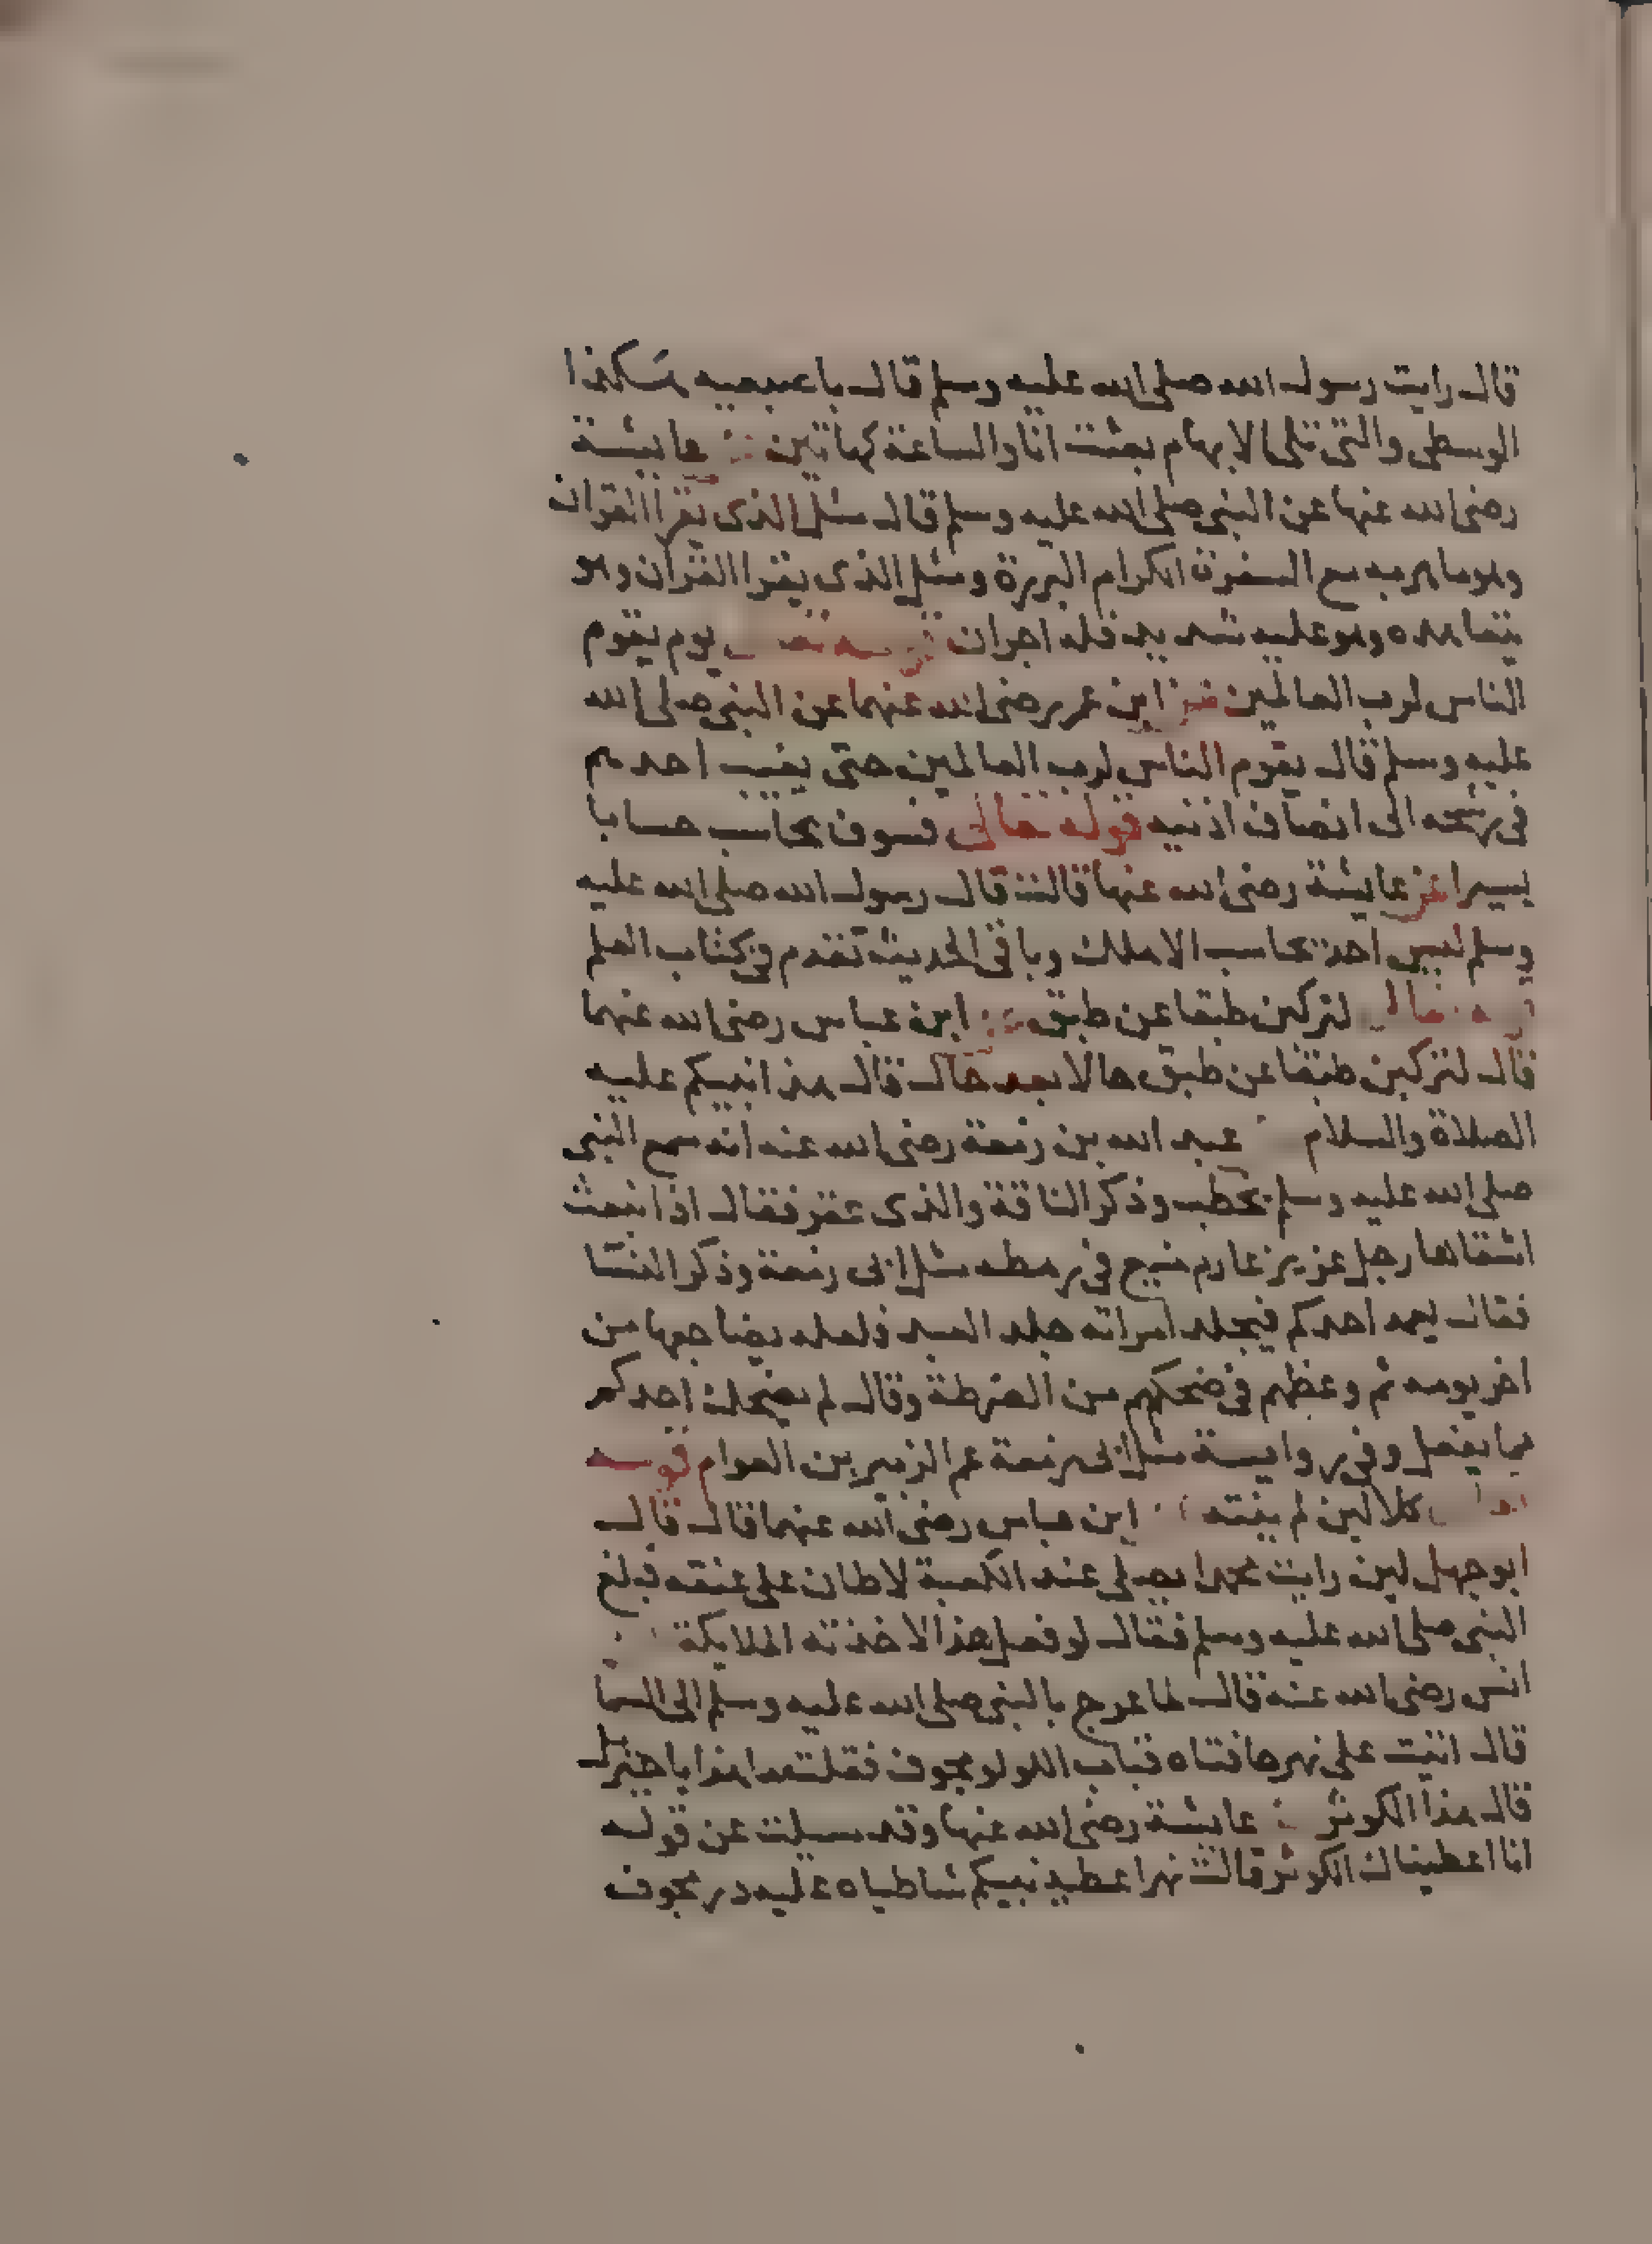 قال رايت رسول الله صلى الله عليه وسلم قال باصبعيه هكذا
الوسطى والتى تلى الابهام بعثت انا والساعة كهاتين عن عايشة
رضى الله عنها عن النبى صلى الله عليه وسلم قال مثل الذى يقرا القران
وهو ماهر به مع السفرة الكرام البررة ومثل الذى يقرا القران وهو
يتعاهده وهو عليه شديد فله اجران قوله تعالى يوم يقوم
الناس لرب العالمين عن ابن عمر رضى الله عنهما عن النبى صلى الله
عليه وسلم قال يقوم الناس لرب العالمين حتى يغيب احدهم
فى رشحه الى انصاف اذنيه قوله تعالى فسوف يحاسب حسابا
يسيرا عن عايشة رضى الله عنها قالت قال رسول الله صلى الله عليه
وسلم ليس احد يحاسب الا هلك وباقى الحديث تقدم فى كتاب العلم
قوله تعالى لتركبن طبقا عن طبق عن ابن عباس رضى الله عنهما
قال لتركبن طبقا عن طبق حالا بعد حال قال هذا نبيكم عليه
الصلاة والسلام عبد الله بن زمعة رضى الله عنه انه سمع النبى
صلى الله عليه وسلم يخطب وذكر الناقة والذى عقر فقال اذ انبعث
اشقاها رجل عزيز عارم منيع فى رهطه مثل ابى زمعة وذكر النسا
فقال يعمد احدكم فيجلد امراته جلد العبد فلعله يضاجعها من
اخر يومه ثم وعظهم فى ضحكهم من الضرطة وقال لم يضحك احدكم
مما يفعل وفى رواية مثل ابى زمعة عم الزبير بن العوام قوله
تعالى كلا لين لم ينته عن ابن عباس رضى الله عنهما قال قال
ابو جهل لين رايت محمدا يصلى عند الكعبة لاطان على عنقه فبلغ
النبى صلى الله عليه وسلم فقال لو فعل هذا لاخذته الملايكة
انس رضى الله عنه قال لما عرج بالنبى صلى الله عليه وسلم الى السما
قال اتيت على نهر حافتاه قباب اللولو مجوف فقلت ما هذا يا جبريل
قال هذا الكوثر عن عايشة رضى الله عنها وقد سيلت عن قوله
انا اعطيناك الكوثر قالت نهر اعطيه نبيكم شاطياه عليه در مجوف